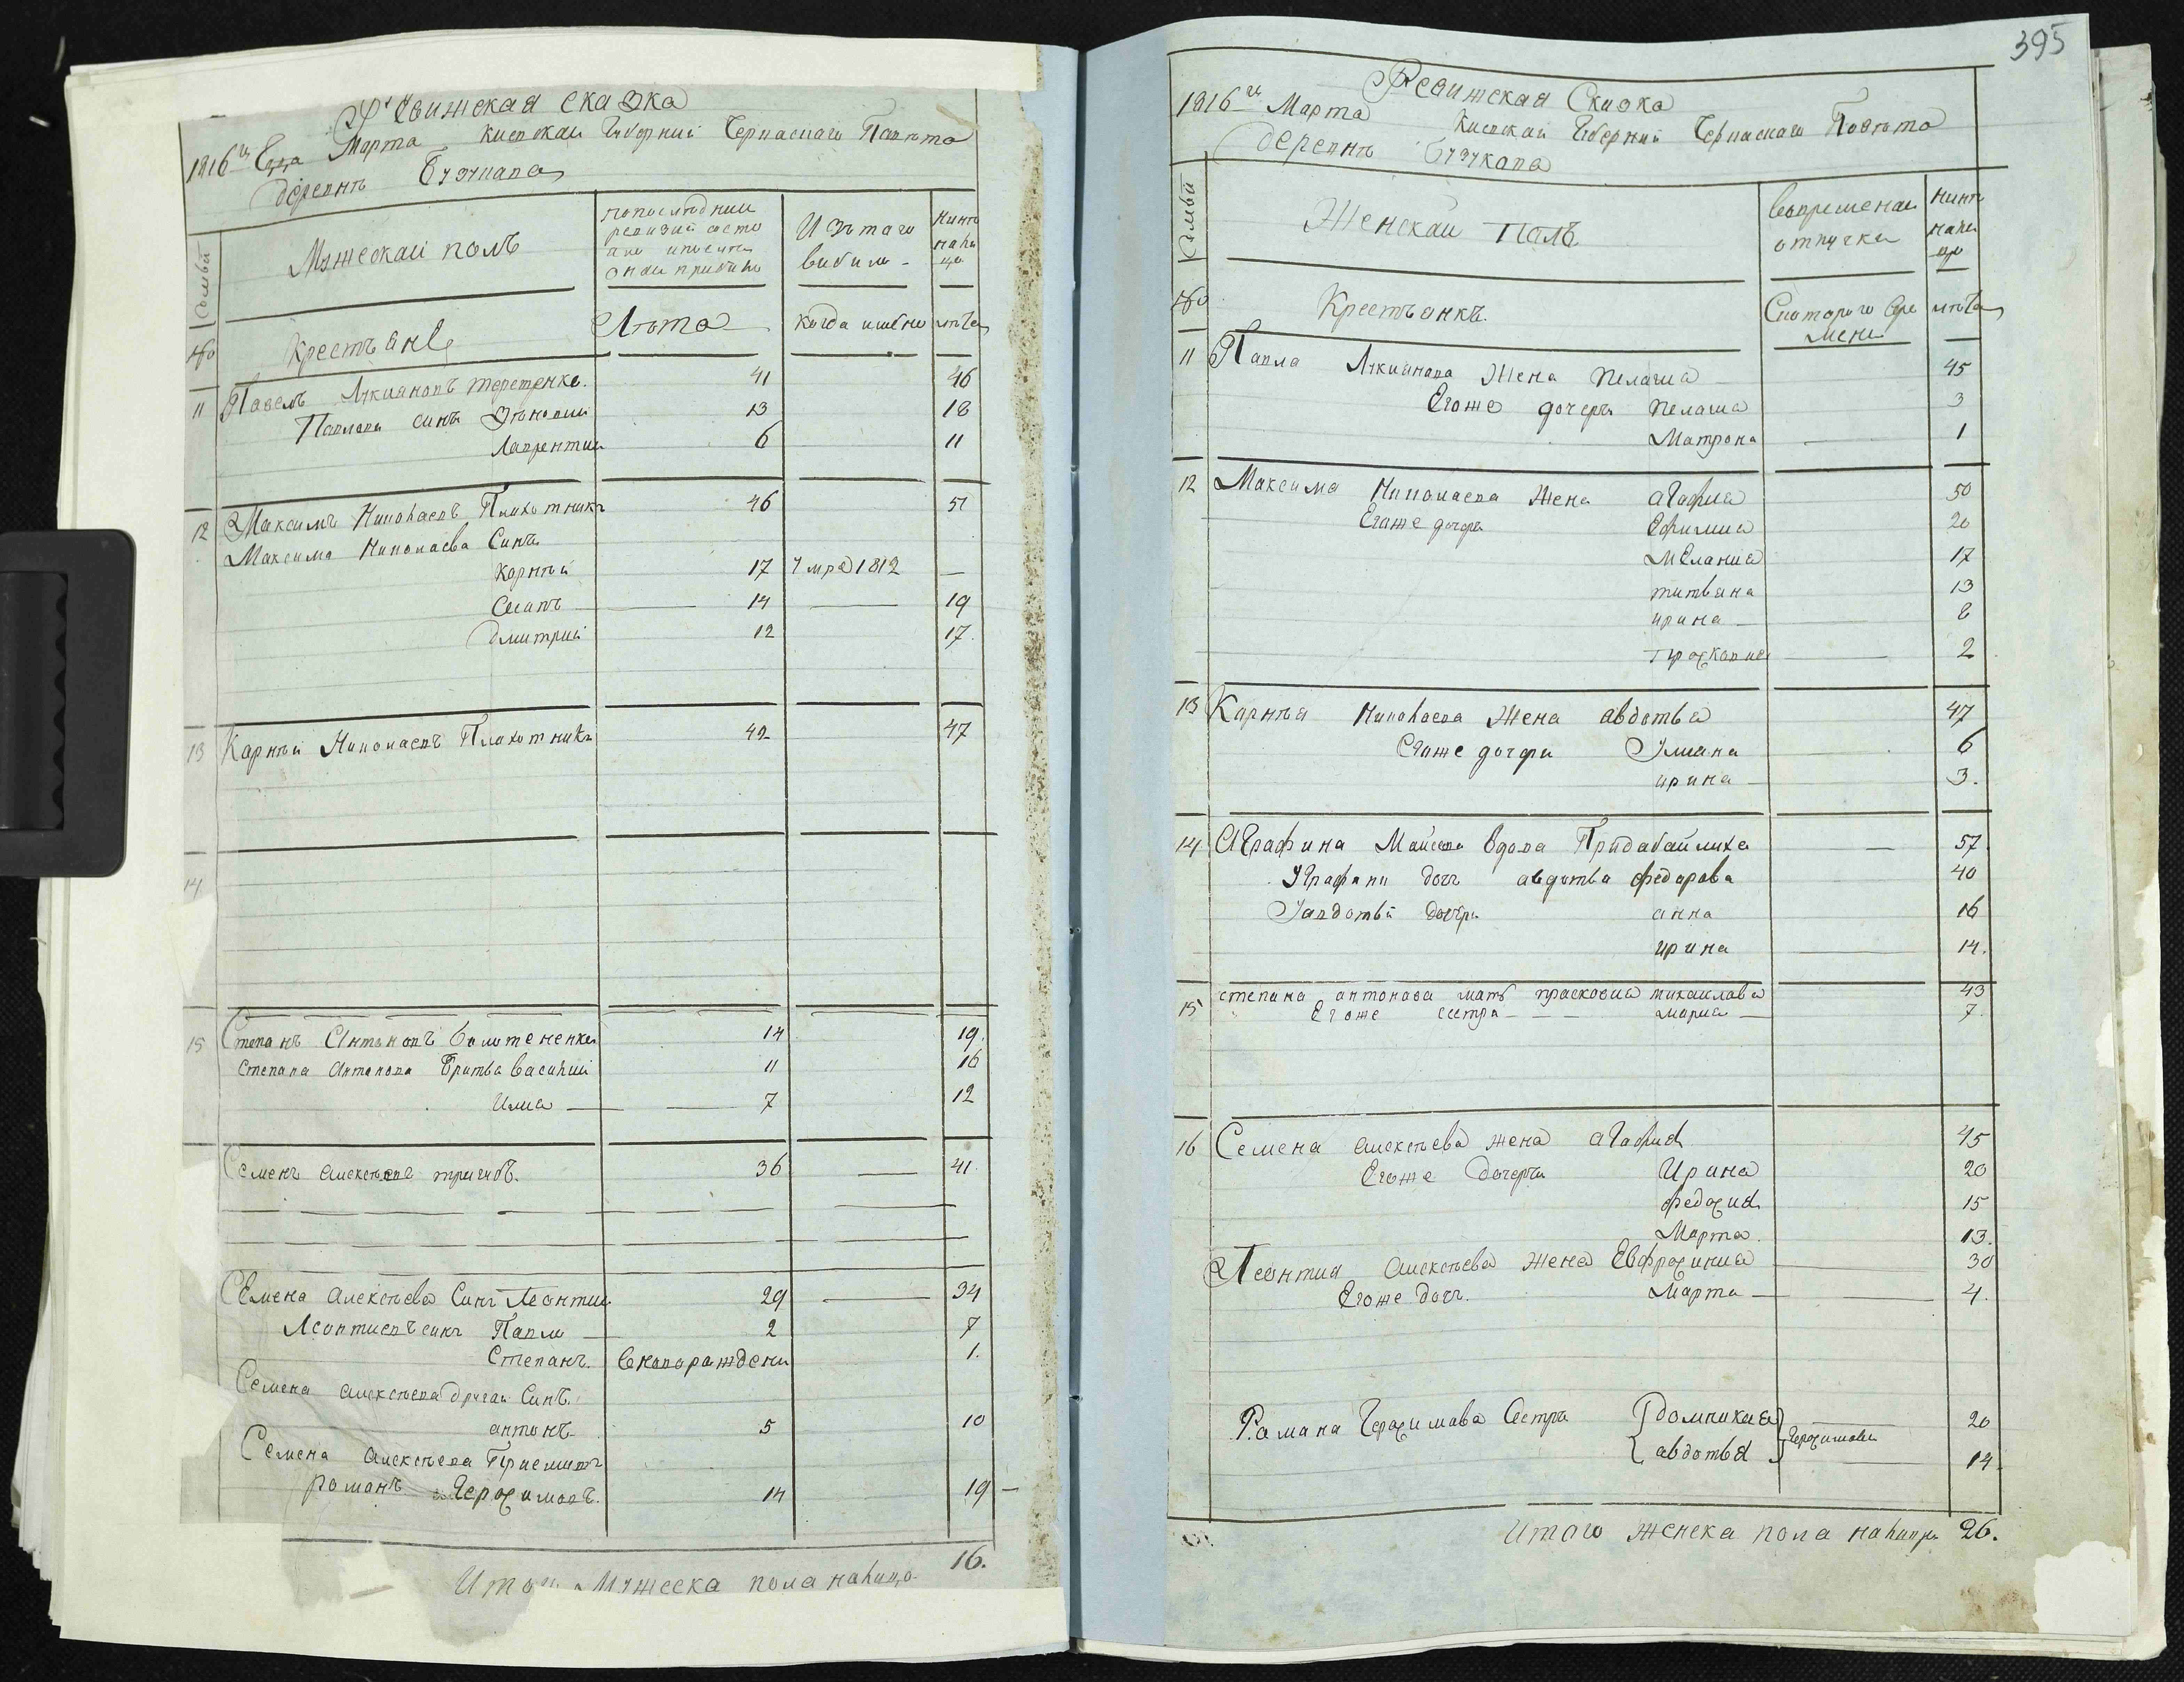 Ревижская сказка
1816го Года Марта Киевской Губерний Черкаскаго Павѣта
деревнѣ Бузукава
Семьи
Мужескаи полъ
попоследнии ревизии состо
онаи прибило
Изътаго вибило
Нинѣ налицо
№
Крестьяне
Лѣта
когда имено
лѣта
11 Павелъ Лукиановъ терещенко. 41 46
Павлова синъ Зѣновии 13 18
Лаврентии 6 11
12 Максимъ Николаевъ Плихотникъ 46 51
Максима Николаева Синъ
Карнѣй 17 Умре 1812 —
Осипъ 14 19
Дмитрий 12 17.
13 Карнѣй Николаевъ Плихотникъ 42 47
14
15 Степанъ Антоновъ Болотененко 14 19.
Степана Антонова Братьа Василий 11 16
Илиа 7 12
Семенъ алексѣевъ 36 41.
Семена алексѣева Синъ Леонтии 29 34
Леонтиевъ синъ Павло 2 7
Степанъ. вновораждени 1.
Семена алексѣева другаи Синъ.
антонъ 5 10
Семена алексѣева Приемишъ
романъ Герасимовъ. 14 19
Итого Мужеска пола налицо 16.
395
Ревижская Сказка
1816го Марта Киевскаи Губерний Черкаскаго Повѣта
деревнѣ Бузукава
Семьи
Женскаи Полъ
вовременаи отлучки
Нинѣ налицо
№
Крестьянкъ.
Скоторого време мени
лѣта
11 Павла Лукианова Жена Пелагиа 45
Егоже дочеръ Пелагиа 3
Матрона 1
12 Максима Николаева Жена агафиа 50
Егоже дочеръ Ефимиа 20
Меланиа 17
татьана 13
ирина 8
Прасковиа 2
13 Карнѣя Николаева Жена авдотьа 47
Егоже дочери Улиана 6
ирина 3.
14 Аграфина Маисева вдова Придабайлиха 57
Уграфини дочъ авдотьа федорова 40
Уавдотьи дочери анна 16
ирина 14.
15 степана антонова мать прасковиа михаилова 43
Егоже сестра мариа 7.
16 Семена алексѣева жена агафиа 45
Егоже дочери Ирина 20
федосиа 15
Марта. 13.
Леонтия алексѣева жена Евфросиниа 30
Егоже дочъ. Марта 4.
Романа Герасимова Сестри домникиа 20
авдотьа Герасимови 14.
Итого женска пола налицо 26.